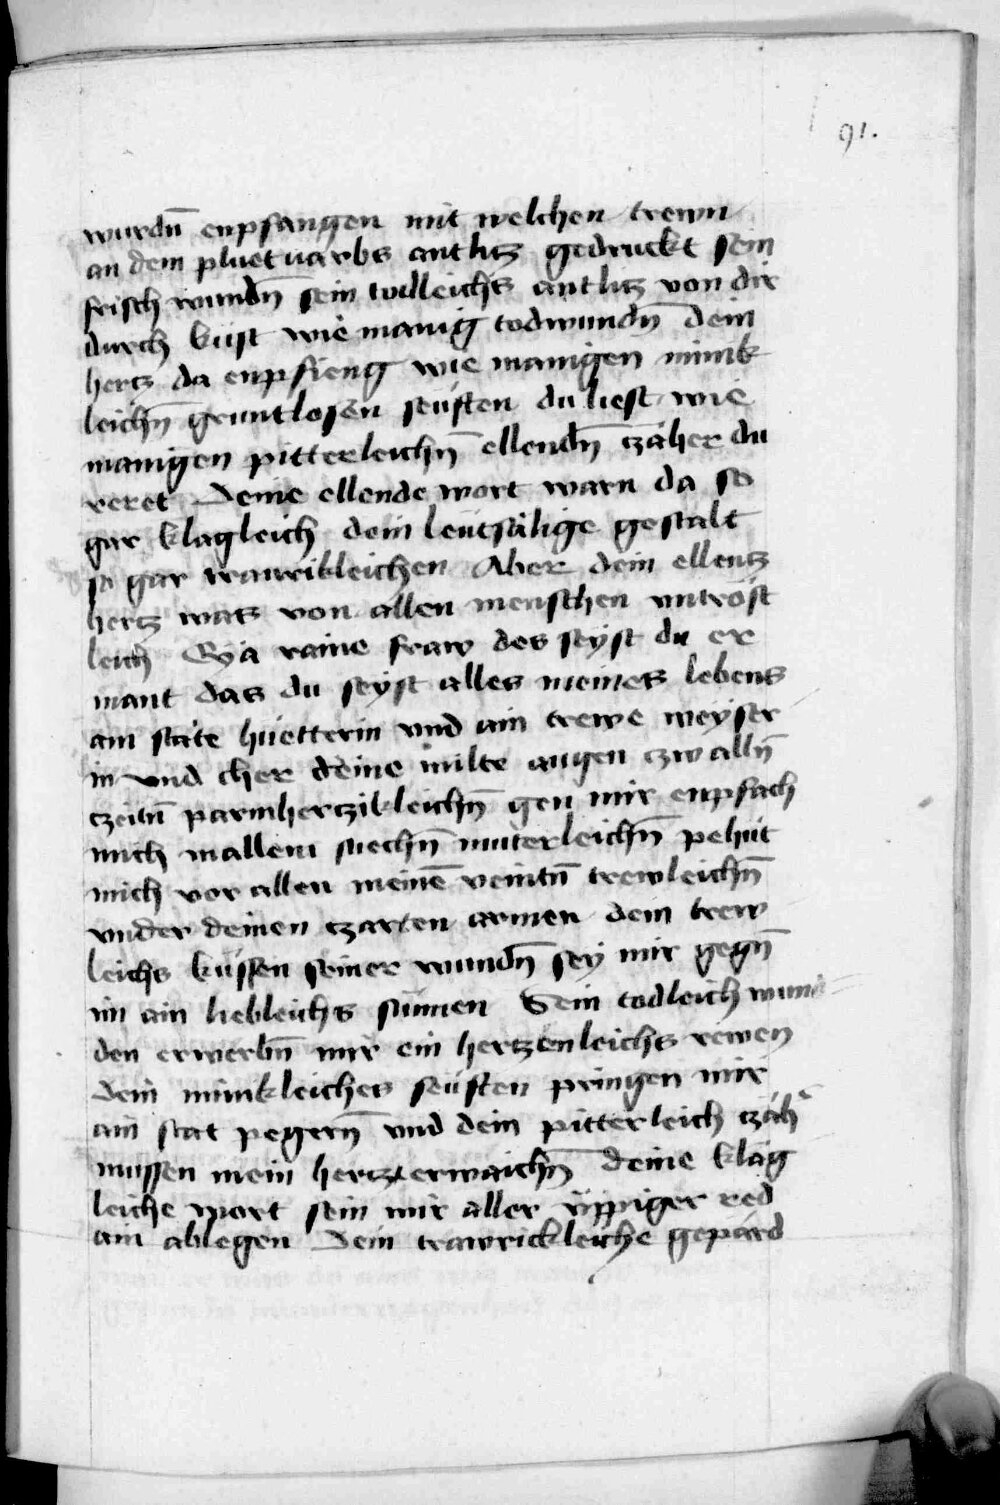 91.
wurdn̄ enpfangen mit welchen trewn
an dem pluetuarbs antlitz gedruckt sein
frisch wundn̄ sein todleichs antlitz von dir
durch küst wie manig todwundn̄ dein
hertz da enpfieng wie manigen mink
leichn̄ gruntlosen seüften du liest wie
manigen pitterleichn̄ ellendn̄ czäher du
reret Deine ellende wort warn da so
gar klagleich dein leütsälige gestalt
so gar trawrikleichen Aber dein ellentz
hertz wats von allen menschen vntröst
leich Eya raine fraw des seyst du er
mant das du seyst alles meines lebens
ain stäte hüetterin vnd ain trewe weyser
in vnd cher deine milte augen czw alln̄
czeitn̄ parmhertzikleichn̄ gen mir enpfach
mich in allem suechn̄ muterleichn̄ pehüt
mich vor allen meinē veintn̄ trewleichn̄
vnder deinen czarten armen dein trew
leichs küssen seiner wundn̄ sey mir gegn̄
im ain liebleichs sünnen Sein todleich wun
den erwerbn̄ mir ein hertzenleichs rewen
Dein minikleiches seüften pringen mir
ain stat pegern̄ vnd dein pitterleich czäh
mussen mein hertz erwaichn̄ deine klag
leiche wort sein mir aller üppiger red
ain ablegen Dein trawrickleiche gepärd